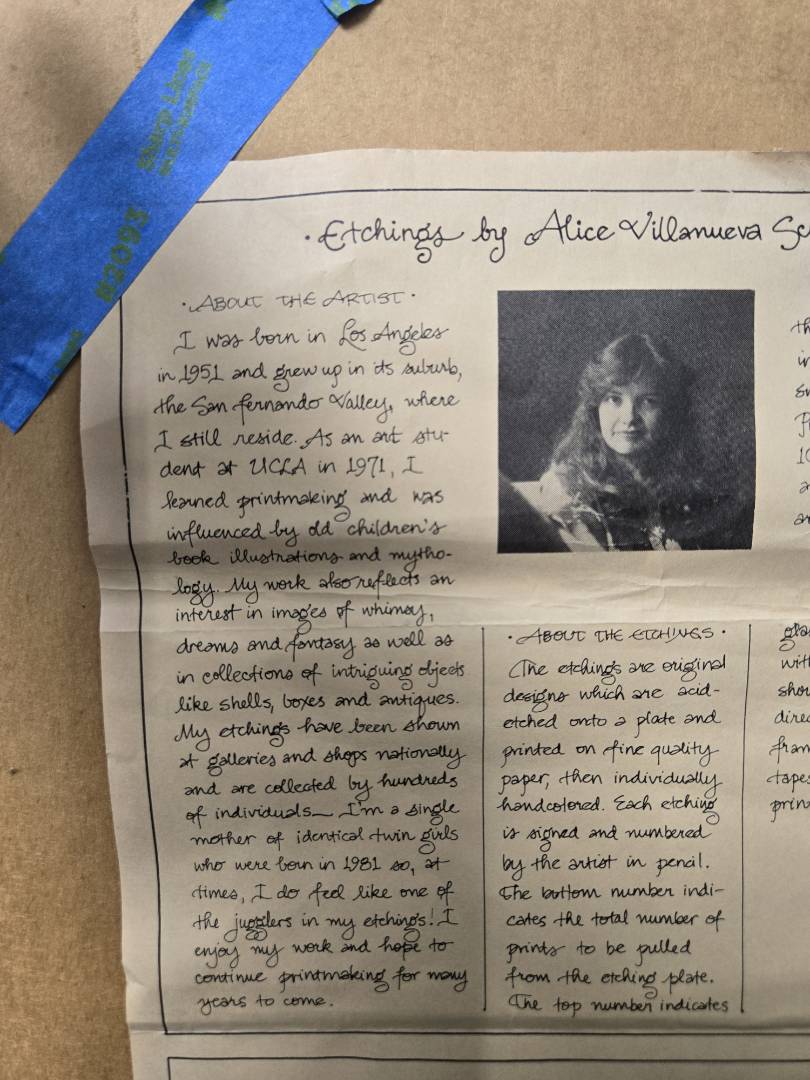 Sharp Lines
#2093
· Etchings by Alice Villanueva Sc
· ABOUT THE ARTIST ·
I was born in Los Angeles
in 1951 and grew up in its suburb,
the San Fernando Valley, where
I still reside. As an art stu-
dent at UCLA in 1971, I
learned printmaking and was
influenced by old children's
book illustrations and mytho-
logy. My work also reflects an
interest in images of whimsy,
dreams and fantasy as well as
in collections of intriguing objects
like shells, boxes and antiques.
My etchings have been shown
at galleries and shops nationally
and are collected by hundreds
of individuals— I'm a single
mother of identical twin girls
who were born in 1981 so, at
times, I do feel like one of
the jugglers in my etchings! I
enjoy my work and hope to
continue printmaking for many
years to come.
· ABOUT THE ETCHINGS ·
The etchings are original
designs which are acid-
etched onto a plate and
printed on fine quality
paper, then individually
handcolored. Each etching
is signed and numbered
by the artist in pencil.
The bottom number indi-
cates the total number of
prints to be pulled
from the etching plate.
The top number indicates
th
in
10
a
an
gla
with
shou
direc
fram
tapes
prin